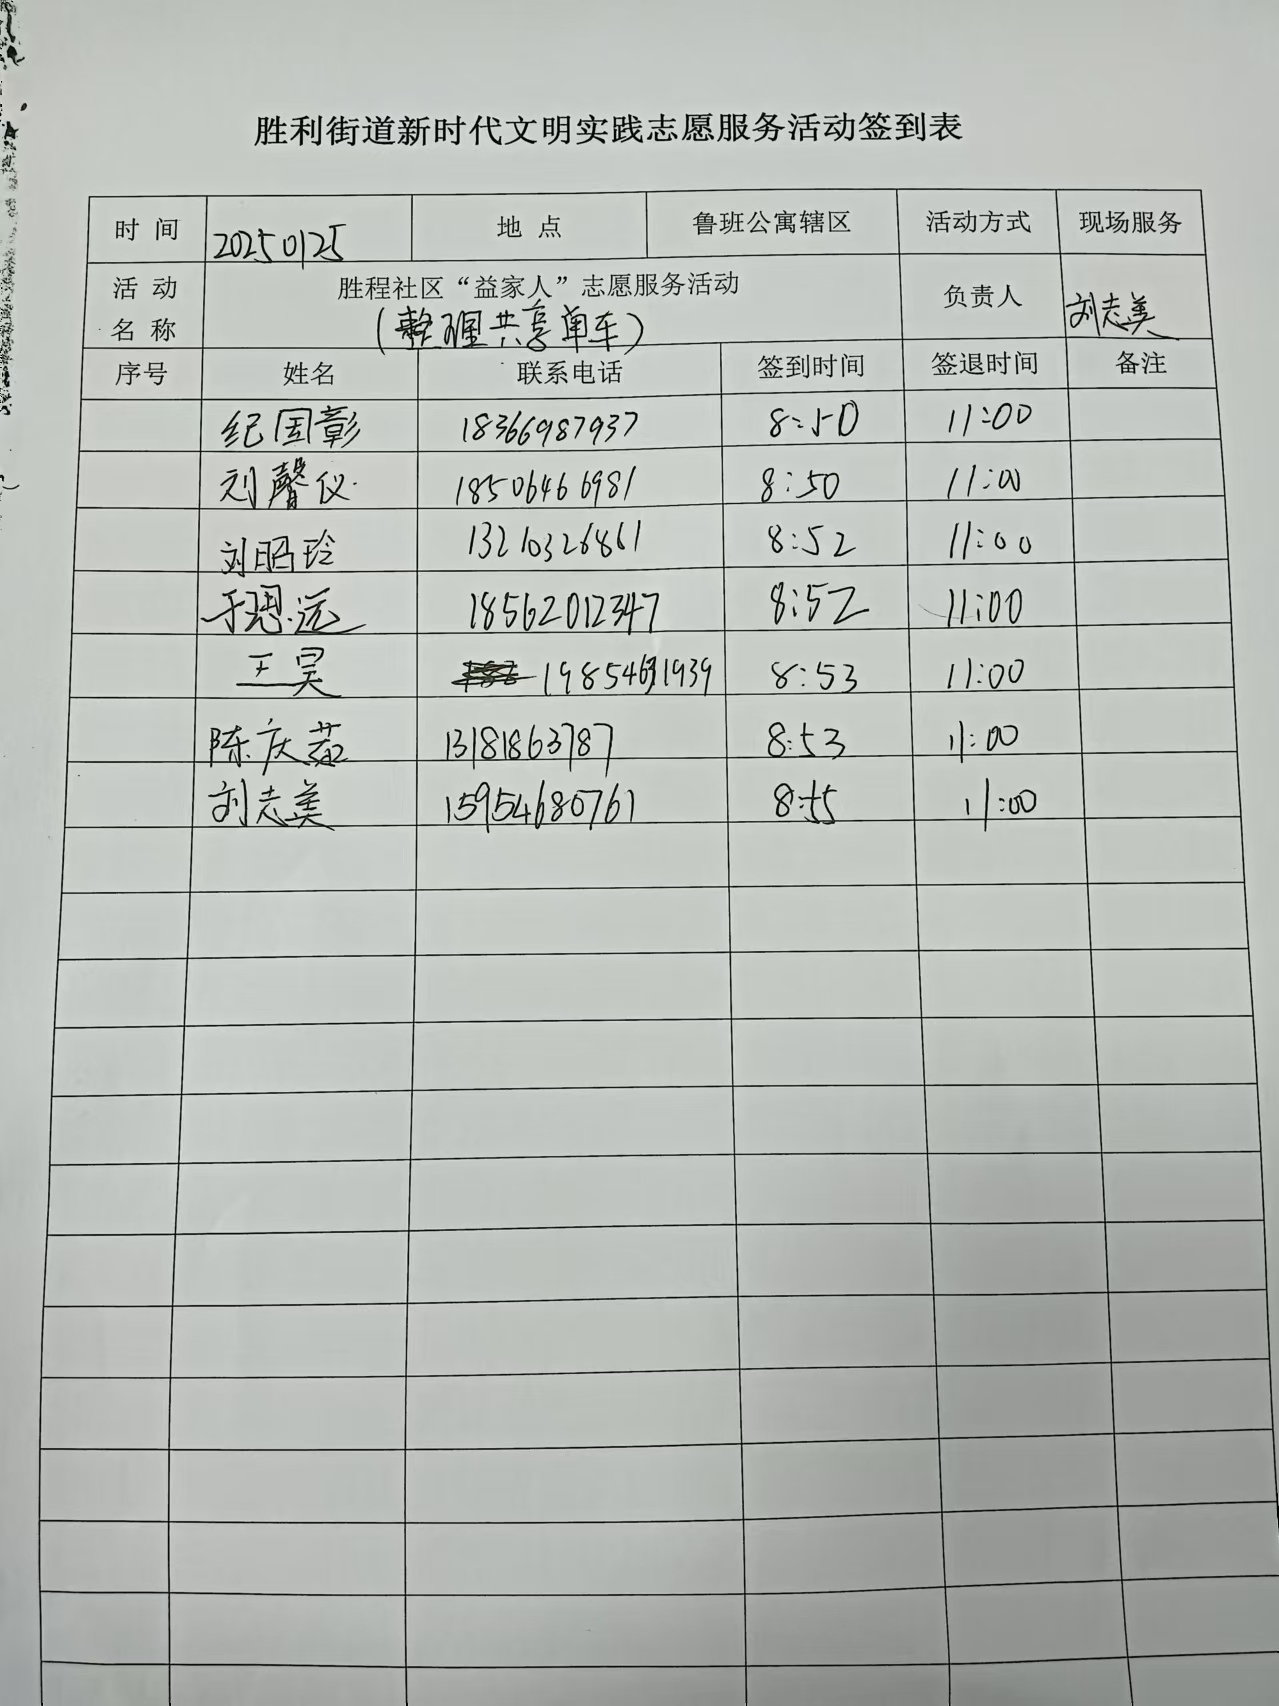 胜利街道新时代文明实践志愿服务活动签到表
时 间 20250125 地 点 鲁班公寓辖区 活动方式 现场服务
活 动 名 称 胜程社区“益家人”志愿服务活动 负责人 刘志美
(整理共享单车)
序号 姓名 联系电话 签到时间 签退时间 备注
纪国彰 18366987937 8:50 11:00
刘馨仪 18506466981 8:50 11:00
刘昭玲 13210326861 8:52 11:00
于恩远 18562012347 8:52 11:00
王昊 8:53 11:00
陈庆茹 13181863787 8:53 11:00
刘志美 15954680761 8:55 11:00